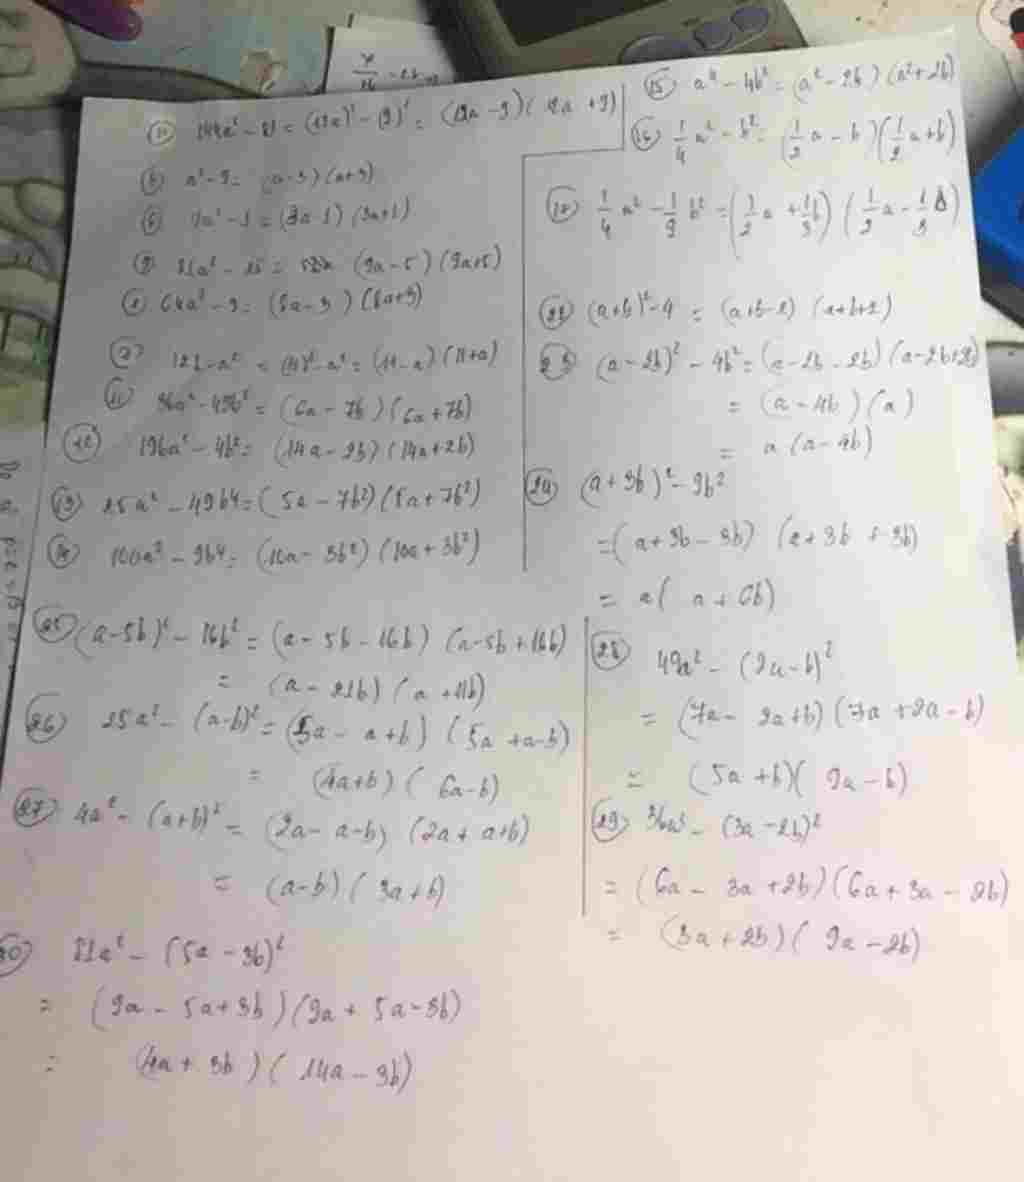 144a² - 81 = (12a)² - (9)² = (12a - 9)(12a + 9)
a² - 9 = (a - 3)(a + 3)
9a² - 1 = (3a - 1)(3a + 1)
81a² - 25 = (9a - 5)(9a + 5)
64a² - 9 = (8a - 3)(8a + 3)
121 - a² = (11)² - a² = (11 - a)(11 + a)
11 36a² - 49b² = (6a - 7b)(6a + 7b)
12 196a² - 4b² = (14a - 2b)(14a + 2b)
13 25a² - 49b4 = (5a - 7b²)(5a + 7b²)
14 100a² - 9b4 = (10a - 3b²)(10a + 3b²)
15 a⁴ - 4b² = (a² - 2b)(a² + 2b)
16 1/4 a² - b² = (1/2 a - b)(1/2 a + b)
1/4 a² - 1/9 b² = (1/2 a + 1/3 b)(1/2 a - 1/3 b)
22 (a + b)² - 4 = (a + b - 2)(a + b + 2)
23 (a - 2b)² - 4b² = (a - 2b - 2b)(a - 2b + 2b)
= (a - 4b)(a)
= a(a - 4b)
24 (a + 3b)² - 9b²
= (a + 3b - 3b)(a + 3b + 3b)
= a(a + 6b)
25 (a - 5b)² - 16b² = (a - 5b - 16b)(a - 5b + 16b)
= (a - 21b)(a + 11b)
26 25a² - (a - b)² = (5a - a + b)(5a + a - b)
= (4a + b)(6a - b)
27 4a² - (a + b)² = (2a - a - b)(2a + a + b)
= (a - b)(3a + b)
28 49a² - (2a - b)²
= (7a - 2a + b)(7a + 2a - b)
= (5a + b)(9a - b)
29 36a² - (3a - 2b)²
= (6a - 3a + 2b)(6a + 3a - 2b)
= (3a + 2b)(9a - 2b)
30 81a² - (5a - 3b)²
= (9a - 5a + 3b)(9a + 5a - 3b)
= (4a + 3b)(14a - 3b)